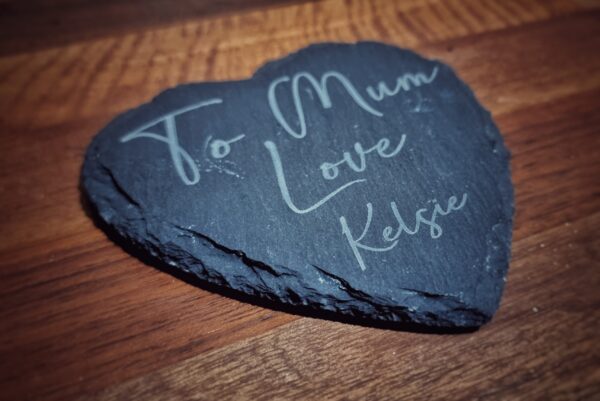 To Mum
Love
Kelsie